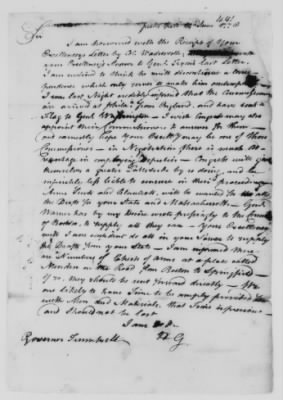 441
Peeks Kill 12 June 1778
Sir
I am honoured with the Receipt of Your
Excellency's Letter by Col. Wadsworth,
your Excellency's Answer to Genl. Tryons last Letter.
I am inclined to think he will discontinue a
which only serves to make him
I was last Night credibly informed that the Commissioners
are arrived at Philada. from England, and have sent a
Flag to Genl. Washington - I wish Congress may also
appoint their Commissioners to answer for them -
and earnestly hope Your Excellency may be one of those
Commissioners - in Negotiation there is much Ad-
vantage in employing Deputies - Congress will give
themselves a greater Latitude by so doing, and be
infinitely less liable to censure in their proceedings
Arms Tents and Blankets, will be wanted for all
the Drafts for your State and Massachusetts - Genl.
Warner has by my desire wrote pressingly to the Council
of Boston, to supply all they can - Your Excellency
will I am confident do all in your Power to supply
the Drafts from your State - I am informed there are
a Number of Chests of Arms at a place called
Meriden in the Road from Boston to Springfield -
if so, they should be sent forward directly - We
are likely to have Time to be amply provided
with Men and Materials, that Time is precious -
and should not be lost
I am &c
HG
Governor Trumbull